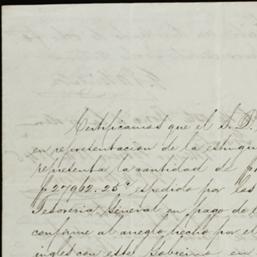 Certificamos que el S. D.
en representacion de la
representa, la cantidad de
$27962.25 espedido por las
Tesoreria General en pago de
conforme al arreglo hecho por el
ingles con este Gobierno en